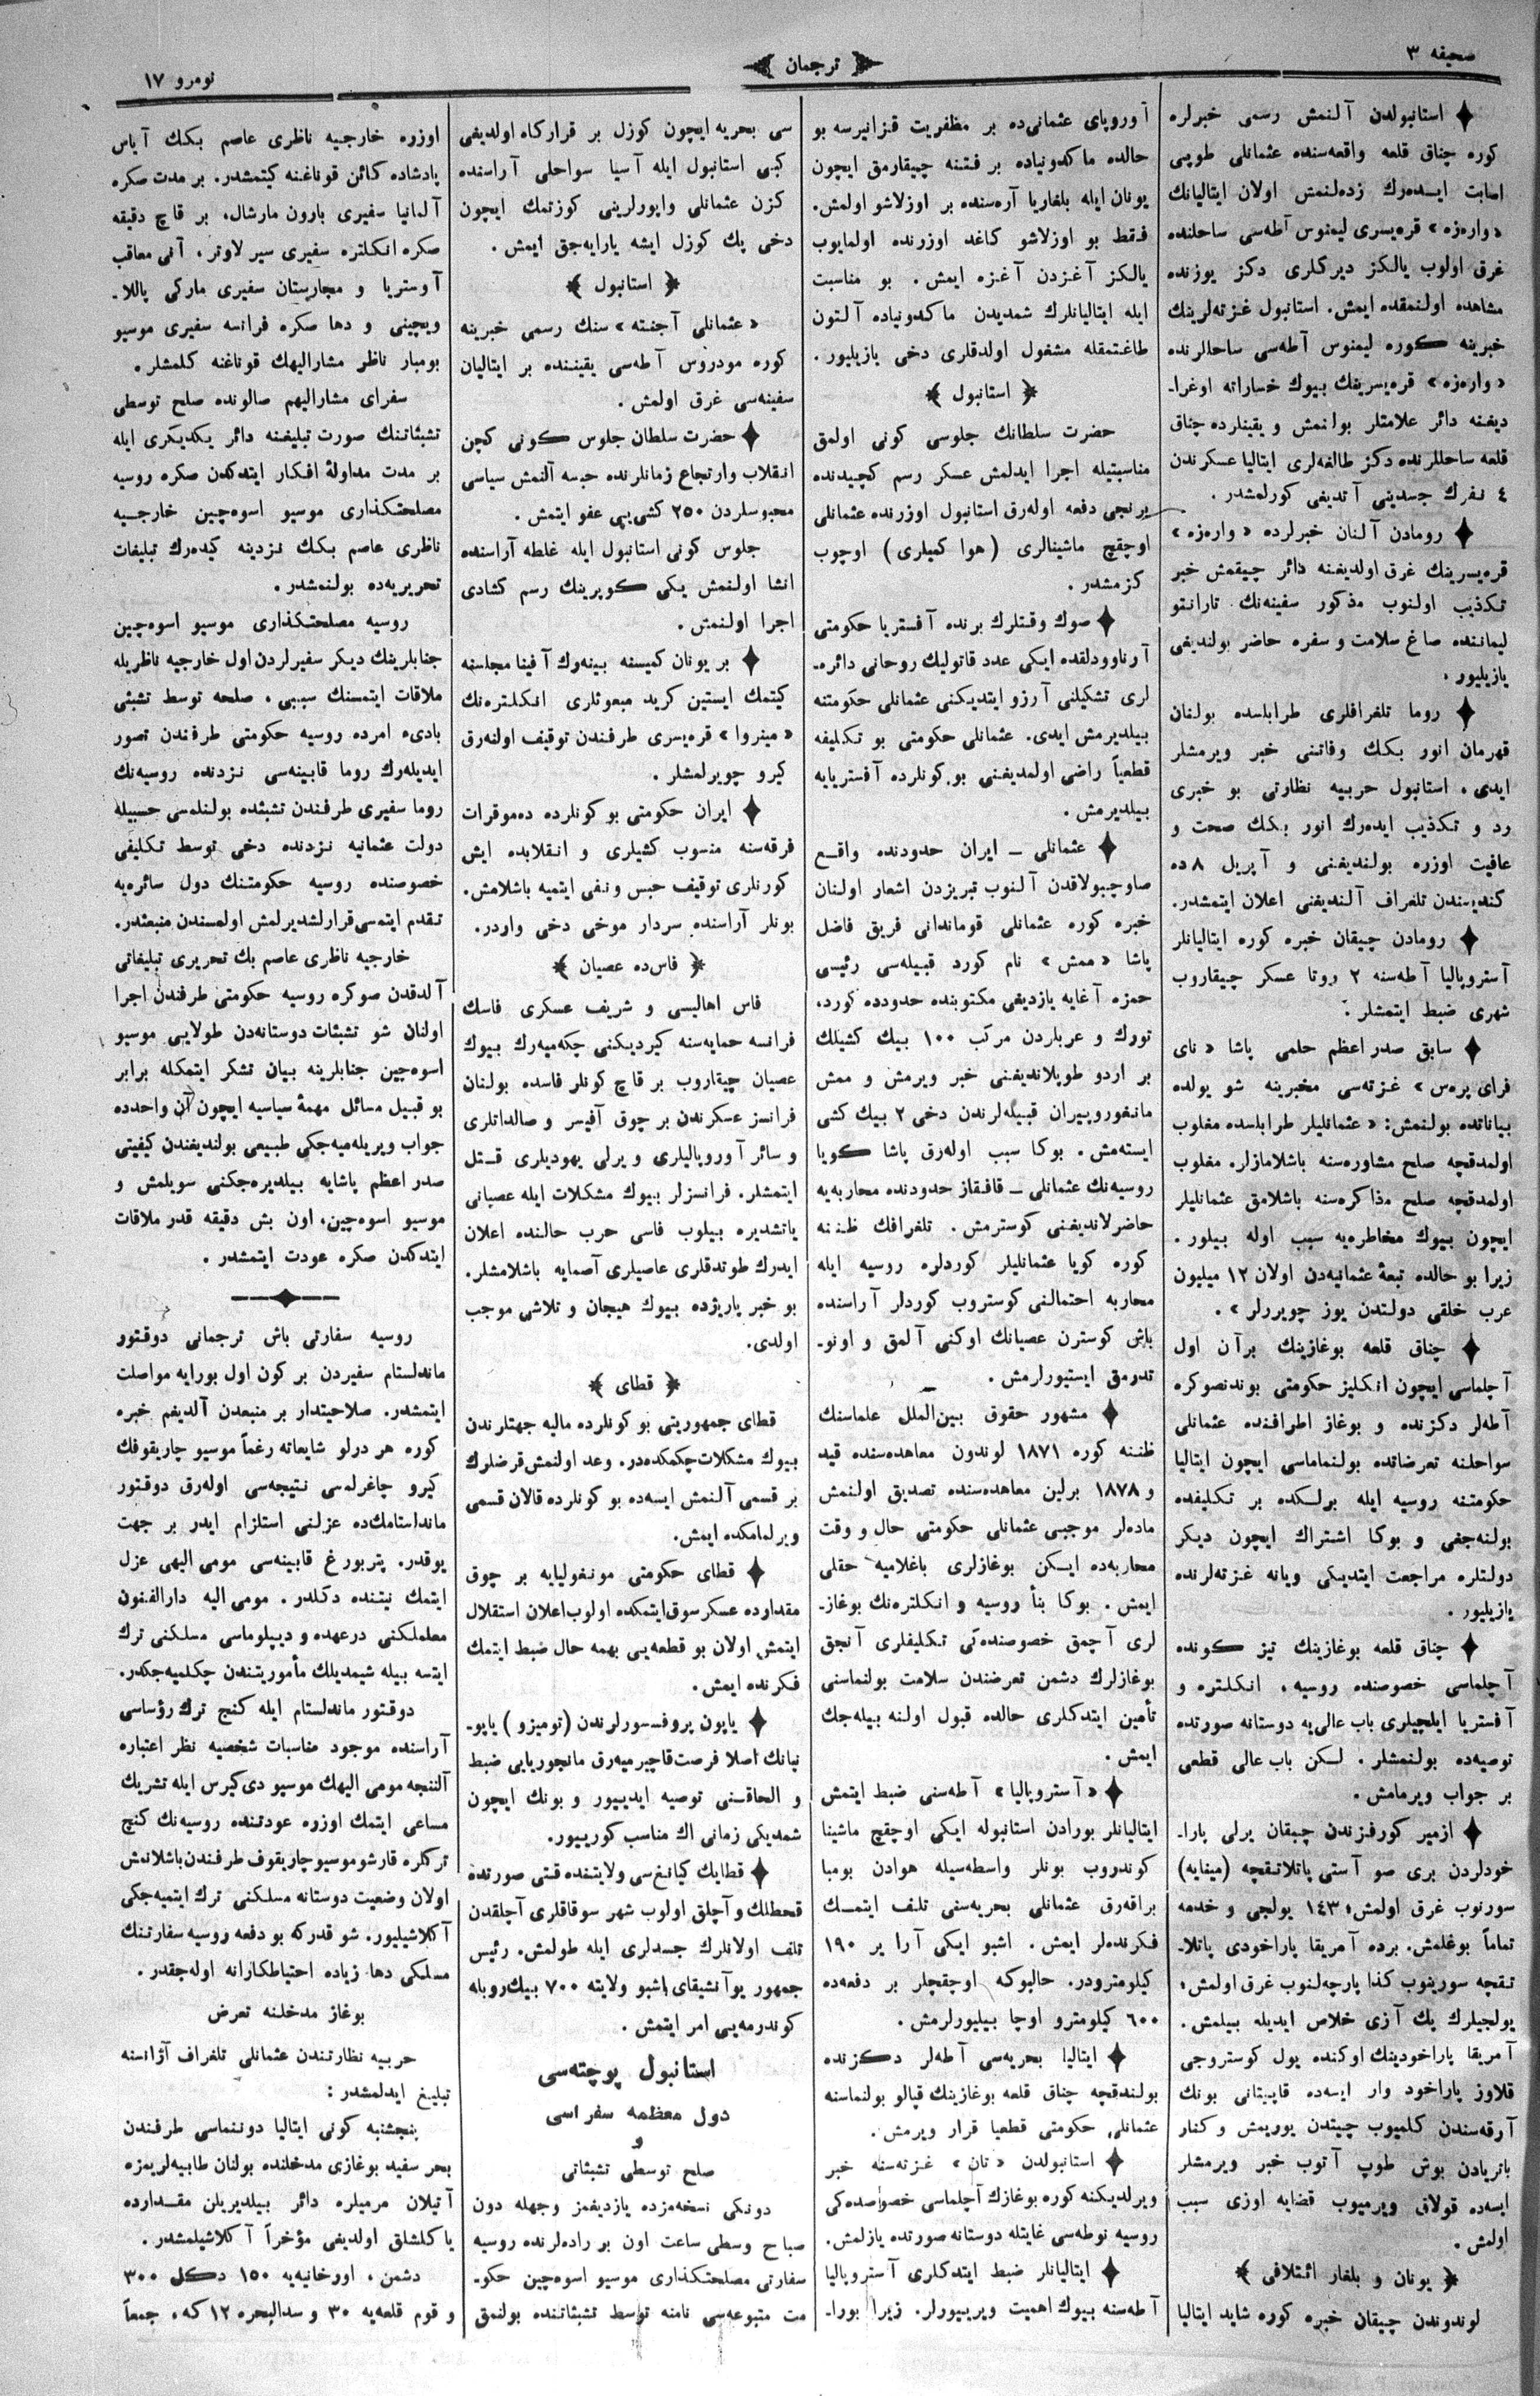 صحیفه ٣
ترجمان
نومرو ١٧
استانبولدن آلنمش رسمی خبرلره
کوره چناق قلعه واقعه‌سنده عثمانلی طوپی
اصابت ایسه‌درك زده‌لنمش اولان ایتالیانك
«وارەزه» قره‌یسری لیمنوس آطه‌سی ساحلنده
غرق اولوب یالکز دیرکلری دکز یوزنده
مشاهده اولنمقده ایمش. استانبول غزته‌لرینك
خبرینه کوره لیمنوس آطه‌سی ساحللرنده
«وارەزه» قره‌یسرینك بیوك خساراته اوغرا-
دیغنه دائر علامتلر بولنمش و یقینلرده چناق
قلعه ساحللرنده دکز طالغه‌لری ایتالیا عسکرندن
٤ نفرك جسدینی آتدیغی کورلمشدر.
رومادن آلنان خبرلرده «وارەزه»
قره‌یسرینك غرق اولدیغنه دائر چیقمش خبر
تکذیب اولنوب مذکور سفینه‌نك تارانتو
لیماننده صاغ سلامت و سفره حاضر بولندیغی
یازیلیور.
روما تلغرافلری طرابلسده بولنان
قهرمان انور بكك وفاتنی خبر ویرمشلر
ایدی. استانبول حربیه نظارتی بو خبری
رد و تکذیب ایده‌رك انور بكك صحت و
عافیت اوزره بولندیغنی و آپریل ٨ ده
کندیسندن تلغراف آلندیغنی اعلان ایتمشدر.
رومادن چیقان خبره کوره ایتالیانلر
آستروپالیا آطه‌سنه ٢ روتا عسکر چیقاروب
شهری ضبط ایتمشلر.
سابق صدر اعظم حلمی پاشا «نای
فرای پره‌س» غزته‌سی مخبرینه شو یولده
بیاناتده بولنمش: «عثمانلیلر طرابلسده مغلوب
اولمدقچه صلح مشاوره‌سنه باشلامازلر. مغلوب
اولمدقچه صلح مذاکره‌سنه باشلامق عثمانلیلر
ایچون بیوك مخاطره‌یه سبب اوله بیلور.
زیرا بو حالده تبعهٔ عثمانیه‌دن اولان ١٢ میلیون
عرب خلقی دولتدن یوز چویررلر».
چناق قلعه بوغازینك برآن اول
آچلماسی ایچون انکلیز حکومتی بوندنصوکره
آطه‌لر دکزنده و بوغاز اطرافنده عثمانلی
سواحلنه تعرضاتده بولنماماسی ایچون ایتالیا
حکومتنه روسیه ایله برلکده بر تکلیفده
بولنه‌جغی و بوکا اشتراك ایچون دیکر
دولتلره مراجعت ایتدیکی ویانه غزته‌لرنده
یازیلیور.
چناق قلعه بوغازینك تیز کونده
آچلماسی خصوصنده روسیه، انکلتره و
آفستریا ایلچیلری باب عالی‌یه دوستانه صورتده
توصیه‌ده بولنمشلر. لسکن باب عالی قطعی
بر جواب ویرمامش.
ازمیر کورفزندن چیقان یرلی پارا-
خودلردن بری صو آستی پاتلانقچه (مینایه)
سورنوب غرق اولمش؛ ١٤٣ یولجی و خدمه
تماماً بوغلمش. برده آمریقا پاراخودی پاتلا-
نقچه سورینوب کذا پارچه‌لنوب غرق اولمش؛
یولجیلرك پك آزی خلاص ایدیله بیلمش.
آمریقا پاراخودینك اوکنده یول کوستروجی
قلاوز پاراخود وار ایسه‌ده قاپیتانی بونك
آرقه‌سندن کلمیوب چیتدن یوریمش و کنار
باتریادن بوش طوپ آتوب خبر ویرمشلر
ایسه‌ده قولاق ویرمیوب قضایه اوزی سبب
اولمش.
یونان و بلغار ائتلافی
لوندوندن چیقان خبره کوره شاید ایتالیا
آوروپای عثمانی‌ده بر مظفریت قزانیرسه بو
حالده ماکدونیاده بر فتنه چیقارمق ایچون
یونان ایله بلغاریا آره‌سنده بر اوزلاشو اولمش.
فقط بو اوزلاشو کاغد اوزرنده اولمایوب
یالکز آغزدن آغزه ایمش. بو مناسبت
ایله ایتالیانلرك شمدیدن ماکدونیاده آلتون
طاغتمقله مشغول اولدقلری دخی یازیلیور.
استانبول
حضرت سلطانك جلوسی کونی اولمق
مناسبتیله اجرا ایدلمش عسکر رسم کچیدنده
برنجی دفعه اوله‌رق استانبول اوزرنده عثمانلی
اوچقچ ماشینالری (هوا کمیلری) اوچوب
کزمشدر.
صوك وقتلرك برنده آفستریا حکومتی
آرناوودلقده ایکی عدد قاتولیك روحانی دائره-
لری تشکیلنی آرزو ایتدیکنی عثمانلی حکومتنه
بیلدیرمش ایدی. عثمانلی حکومتی بو تکلیفه
قطعیاً راضی اولمدیغنی بو کونلرده آفستریایه
بیلدیرمش.
عثمانلی ــ ایران حدودنده واقع
صاوجبولاقدن آلنوب تبریزدن اشعار اولنان
خبره کوره عثمانلی قوماندانی فریق فاضل
پاشا «ممش» نام کورد قبیله‌سی رئیسی
حمزه آغایه یازدیغی مکتوبنده حدودده کورد،
تورك و عربلردن مرکب ١٠٠ بیك کشیلك
بر اردو طوپلاندیغنی خبر ویرمش و ممش
مانغوروبیران قبیله‌لرندن دخی ٢ بیك کشی
ایسته‌مش. بوکا سبب اوله‌رق پاشا کویا
روسیه‌نك عثمانلی ــ قافقاز حدودنده محاربه‌یه
حاضرلاندیغنی کوسترمش. تلغرافك ظننه
کوره کویا عثمانلیلر کوردلره روسیه ایله
محاربه احتمالنی کوستروب کوردلر آراسنده
باش کوسترن عصیانك اوکنی آلمق و اونو-
تدرمق ایستیورلرمش.
مشهور حقوق بین‌الملل علماسنك
ظننه کوره ١٨٧١ لوندون معاهده‌سنده قید
و ١٨٧٨ برلین معاهده‌سنده تصدیق اولنمش
ماده‌لر موجبی عثمانلی حکومتی حال و وقت
محاربه‌ده ایسکن بوغازلری باغلامیه حقلی
ایمش. بوکا بنأ روسیه و انکلتره‌نك بوغاز-
لری آچمق خصوصنده‌کی تکلیفلری آنجق
بوغازلرك دشمن تعرضندن سلامت بولنماسنی
تأمین ایتدکلری حالده قبول اولنه بیله‌جك
ایمش.
«آستروپالیا» آطه‌سنی ضبط ایتمش
ایتالیانلر بورادن استانبوله ایکی اوچقچ ماشینا
کوندروب بونلر واسطه‌سیله هوادن بومبا
براقه‌رق عثمانلی بحریه‌سنی تلف ایتمك
فکرنده‌لر ایمش. اشبو ایکی آرا یر ١٩٠
کیلومترودر. حالبوکه اوچقچلر بر دفعه‌ده
٦٠٠ کیلومترو اوچا بیلیورلرمش.
ایتالیا بحریه‌سی آطه‌لر دکزنده
بولندقچه چناق قلعه بوغازینك قپالو بولنماسنه
عثمانلی حکومتی قطعیا قرار ویرمش.
استانبولدن «تان» غزته‌سنه خبر
ویرلدیکنه کوره بوغازك آچلماسی خصوصنده‌کی
روسیه نوطه‌سی غایتله دوستانه صورتده یازلمش.
ایتالیانلر ضبط ایتدکلری آستروپالیا
آطه‌سنه بیوك اهمیت ویرییورلر. زیرا بورا-
سی بحریه ایچون کوزل بر قرارکاه اولدیغی
کبی استانبول ایله آسیا سواحلی آراسنده
کزن عثمانلی واپورلرینی کوزتمك ایچون
دخی پك کوزل ایشه یارایه‌جق ایمش.
استانبول
«عثمانلی آجنته» سنك رسمی خبرینه
کوره مودروس آطه‌سی یقیننده بر ایتالیان
سفینه‌سی غرق اولمش.
حضرت سلطان جلوس کونی کچن
انقلاب وارتجاع زمانلرنده حبسه آلنمش سیاسی
محبوسلردن ٢٥٠ کشی‌یی عفو ایتمش.
جلوس کونی استانبول ایله غلطه آراسنده
انشا اولنمش یکی کوپرینك رسم کشادی
اجرا اولنمش.
بر یونان کمیسنه بینه‌رك آفینا مجلسنه
کیتمك ایستین کرید مبعوثلری انکلتره‌نك
«مینروا» قره‌یسری طرفندن توقیف اولنه‌رق
کیرو چویرلمشلر.
ایران حکومتی بو کونلرده ده‌موقرات
فرقه‌سنه منسوب کشیلری و انقلابده ایش
کورنلری توقیف حبس و نفی ایتمیه باشلامش.
بونلر آراسنده سردار موخی دخی واردر.
فاس‌ده عصیان
فاس اهالیسی و شریف عسکری فاسك
فرانسه حمایه‌سنه کیردیکنی چکه‌میه‌رك بیوك
عصیان چیقاروب بر قاچ کونلر فاسده بولنان
فرانسز عسکرندن بر چوق آفیسر و صالداتلری
و سائر آوروپالیلری و یرلی یهودیلری قتل
ایتمشلر. فرانسزلر بیوك مشکلات ایله عصیانی
یاتشدیره بیلوب فاسی حرب حالنده اعلان
ایدرك طوتدقلری عاصیلری آصمایه باشلامشلر.
بو خبر پاریژده بیوك هیجان و تلاشی موجب
اولدی.
قطای
قطای جمهوریتی بو کونلرده مالیه جهتلرندن
بیوك مشکلات چکمکده‌در. وعد اولنمش قرضلرك
بر قسمی آلنمش ایسه‌ده بو کونلرده قالان قسمی
ویرلمامکده ایمش.
قطای حکومتی مونغولیایه بر چوق
مقدارده عسکر سوق ایتمکده اولوب اعلان استقلال
ایتمش اولان بو قطعه‌یی بهمه حال ضبط ایتمك
فکرنده ایمش.
یاپون پروفسورلرندن (تومیزو) یاپو-
نیانك اصلا فرصت قاچیرمیه‌رق مانجوریایی ضبط
و الحاقسنی توصیه ایدییور و بونك ایچون
شمدیکی زمانی اك مناسب کورییور.
قطایك کیانغ‌سی ولایتنده قتی صورتده
قحطلك و آچلق اولوب شهر سوقاقلری آچلقدن
تلف اولانلرك جسدلری ایله طولمش. رئیس
جمهور یوآنشیقای اشبو ولایته ٧٠٠ بیك روبله
کوندرمه‌یی امر ایتمش.
استانبول پوچته‌سی
دول معظمه سفراسی
و
صلح توسطی تشبثاتی
دونکی نسخه‌مزده یازدیغمز وجهله دون
صباح وسطی ساعت اون بر راده‌لرنده روسیه
سفارتی مصلحتکذاری موسیو اسوه‌چین حکو-
مت متبوعه‌سی نامنه توسط تشبثاتنده بولنمق
اوزره خارجیه ناظری عاصم بكك آیاس
پادشاده کائن قوناغنه کیتمشدر. بر مدت صکره
آلمانیا سفیری بارون مارشال، بر قاچ دقیقه
صکره انکلتره سفیری سیر لاوتر، آنی معاقب
آوستریا و مجارستان سفیری مارکی پاللا-
ویچینی و دها صکره فرانسه سفیری موسیو
بومپار ناظر مشارالیهك قوناغنه کلمشلر.
سفرای مشارالیهم صالونده صلح توسطی
تشبثاتنك صورت تبلیغنه دائر یکدیکری ایله
بر مدت مداولهٔ افکار ایتدکدن صکره روسیه
مصلحتکذاری موسیو اسوه‌چین خارجیه
ناظری عاصم بكك نزدینه کیده‌رك تبلیغات
تحریریه‌ده بولنمشدر.
روسیه مصلحتکذاری موسیو اسوه‌چین
جنابلرینك دیکر سفیرلردن اول خارجیه ناظریله
ملاقات ایتمسنك سببی، صلحه توسط تشبثی
بادیء امرده روسیه حکومتی طرفندن تصور
ایدیله‌رك روما قابینه‌سی نزدنده روسیه‌نك
روما سفیری طرفندن تشبثده بولنلمسی حسبیله
دولت عثمانیه نزدنده دخی توسط تکلیفی
خصوصنده روسیه حکومتنك دول سائره‌یه
تقدم ایتمسی قرارلشدیرلمش اولمسندن منبعثدر.
خارجیه ناظری عاصم بك تحریری تبلیغاتی
آلدقدن صوکره روسیه حکومتی طرفندن اجرا
اولنان شو تشبثات دوستانه‌دن طولایی موسیو
اسوه‌چین جنابلرینه بیان تشکر ایتمکله برابر
بو قبیل مسائل مهمهٔ سیاسیه ایچون آن واحدده
جواب ویریله‌میه‌جکی طبیعی بولندیغندن کیفیتی
صدر اعظم پاشایه بیلدیره‌جکنی سویلمش و
موسیو اسوه‌چین، اون بش دقیقه قدر ملاقات
ایتدکدن صکره عودت ایتمشدر.
روسیه سفارتی باش ترجمانی دوقتور
ماندلستام سفیردن بر کون اول بورایه مواصلت
ایتمشدر. صلاحیتدار بر منبعدن آلدیغم خبره
کوره هر درلو شایعاته رغماً موسیو چاریقوفك
کیرو چاغرلمسی نتیجه‌سی اوله‌رق دوقتور
ماندلستامك‌ده عزلنی استلزام ایدر بر جهت
یوقدر. پتربورغ قابینه‌سی مومی الیهی عزل
ایتمك نیتنده دکلدر. مومی الیه دارالفنون
معلملکنی درعهده و دیپلوماسی مسلکنی ترك
ایتسه بیله شیمدیلك مأموریتندن چکلمیه‌جکدر.
دوقتور ماندلستام ایله کنج ترك رؤساسی
آراسنده موجود مناسبات شخصیه نظر اعتباره
آلننجه مومی الیهك موسیو دی‌کیرس ایله تشریك
مساعی ایتمك اوزره عودتنده روسیه‌نك کنج
ترکلره قارشو موسیو چاریقوف طرفندن باشلانمش
اولان وضعیت دوستانه مسلکنی ترك ایتمیه‌جکی
آکلاشیلیور. شو قدرکه بو دفعه روسیه سفارتنك
مسلکی دها زیاده احتیاطکارانه اوله‌جقدر.
بوغاز مدخلنه تعرض
حربیه نظارتندن عثمانلی تلغراف آژانسنه
تبلیغ ایدلمشدر:
پنجشنبه کونی ایتالیا دوننماسی طرفندن
بحر سفید بوغازی مدخلنده بولنان طابیه‌لریمزه
آتیلان مرمیلره دائر بیلدیریلن مقدارده
یاکلشلق اولدیغی مؤخراً آکلاشیلمشدر.
دشمن، اورخانیه‌یه ١٥٠ دکل ٣٠٠
و قوم قلعه‌یه ٣٠ و سدالبحره ١٢ که، جمعاً